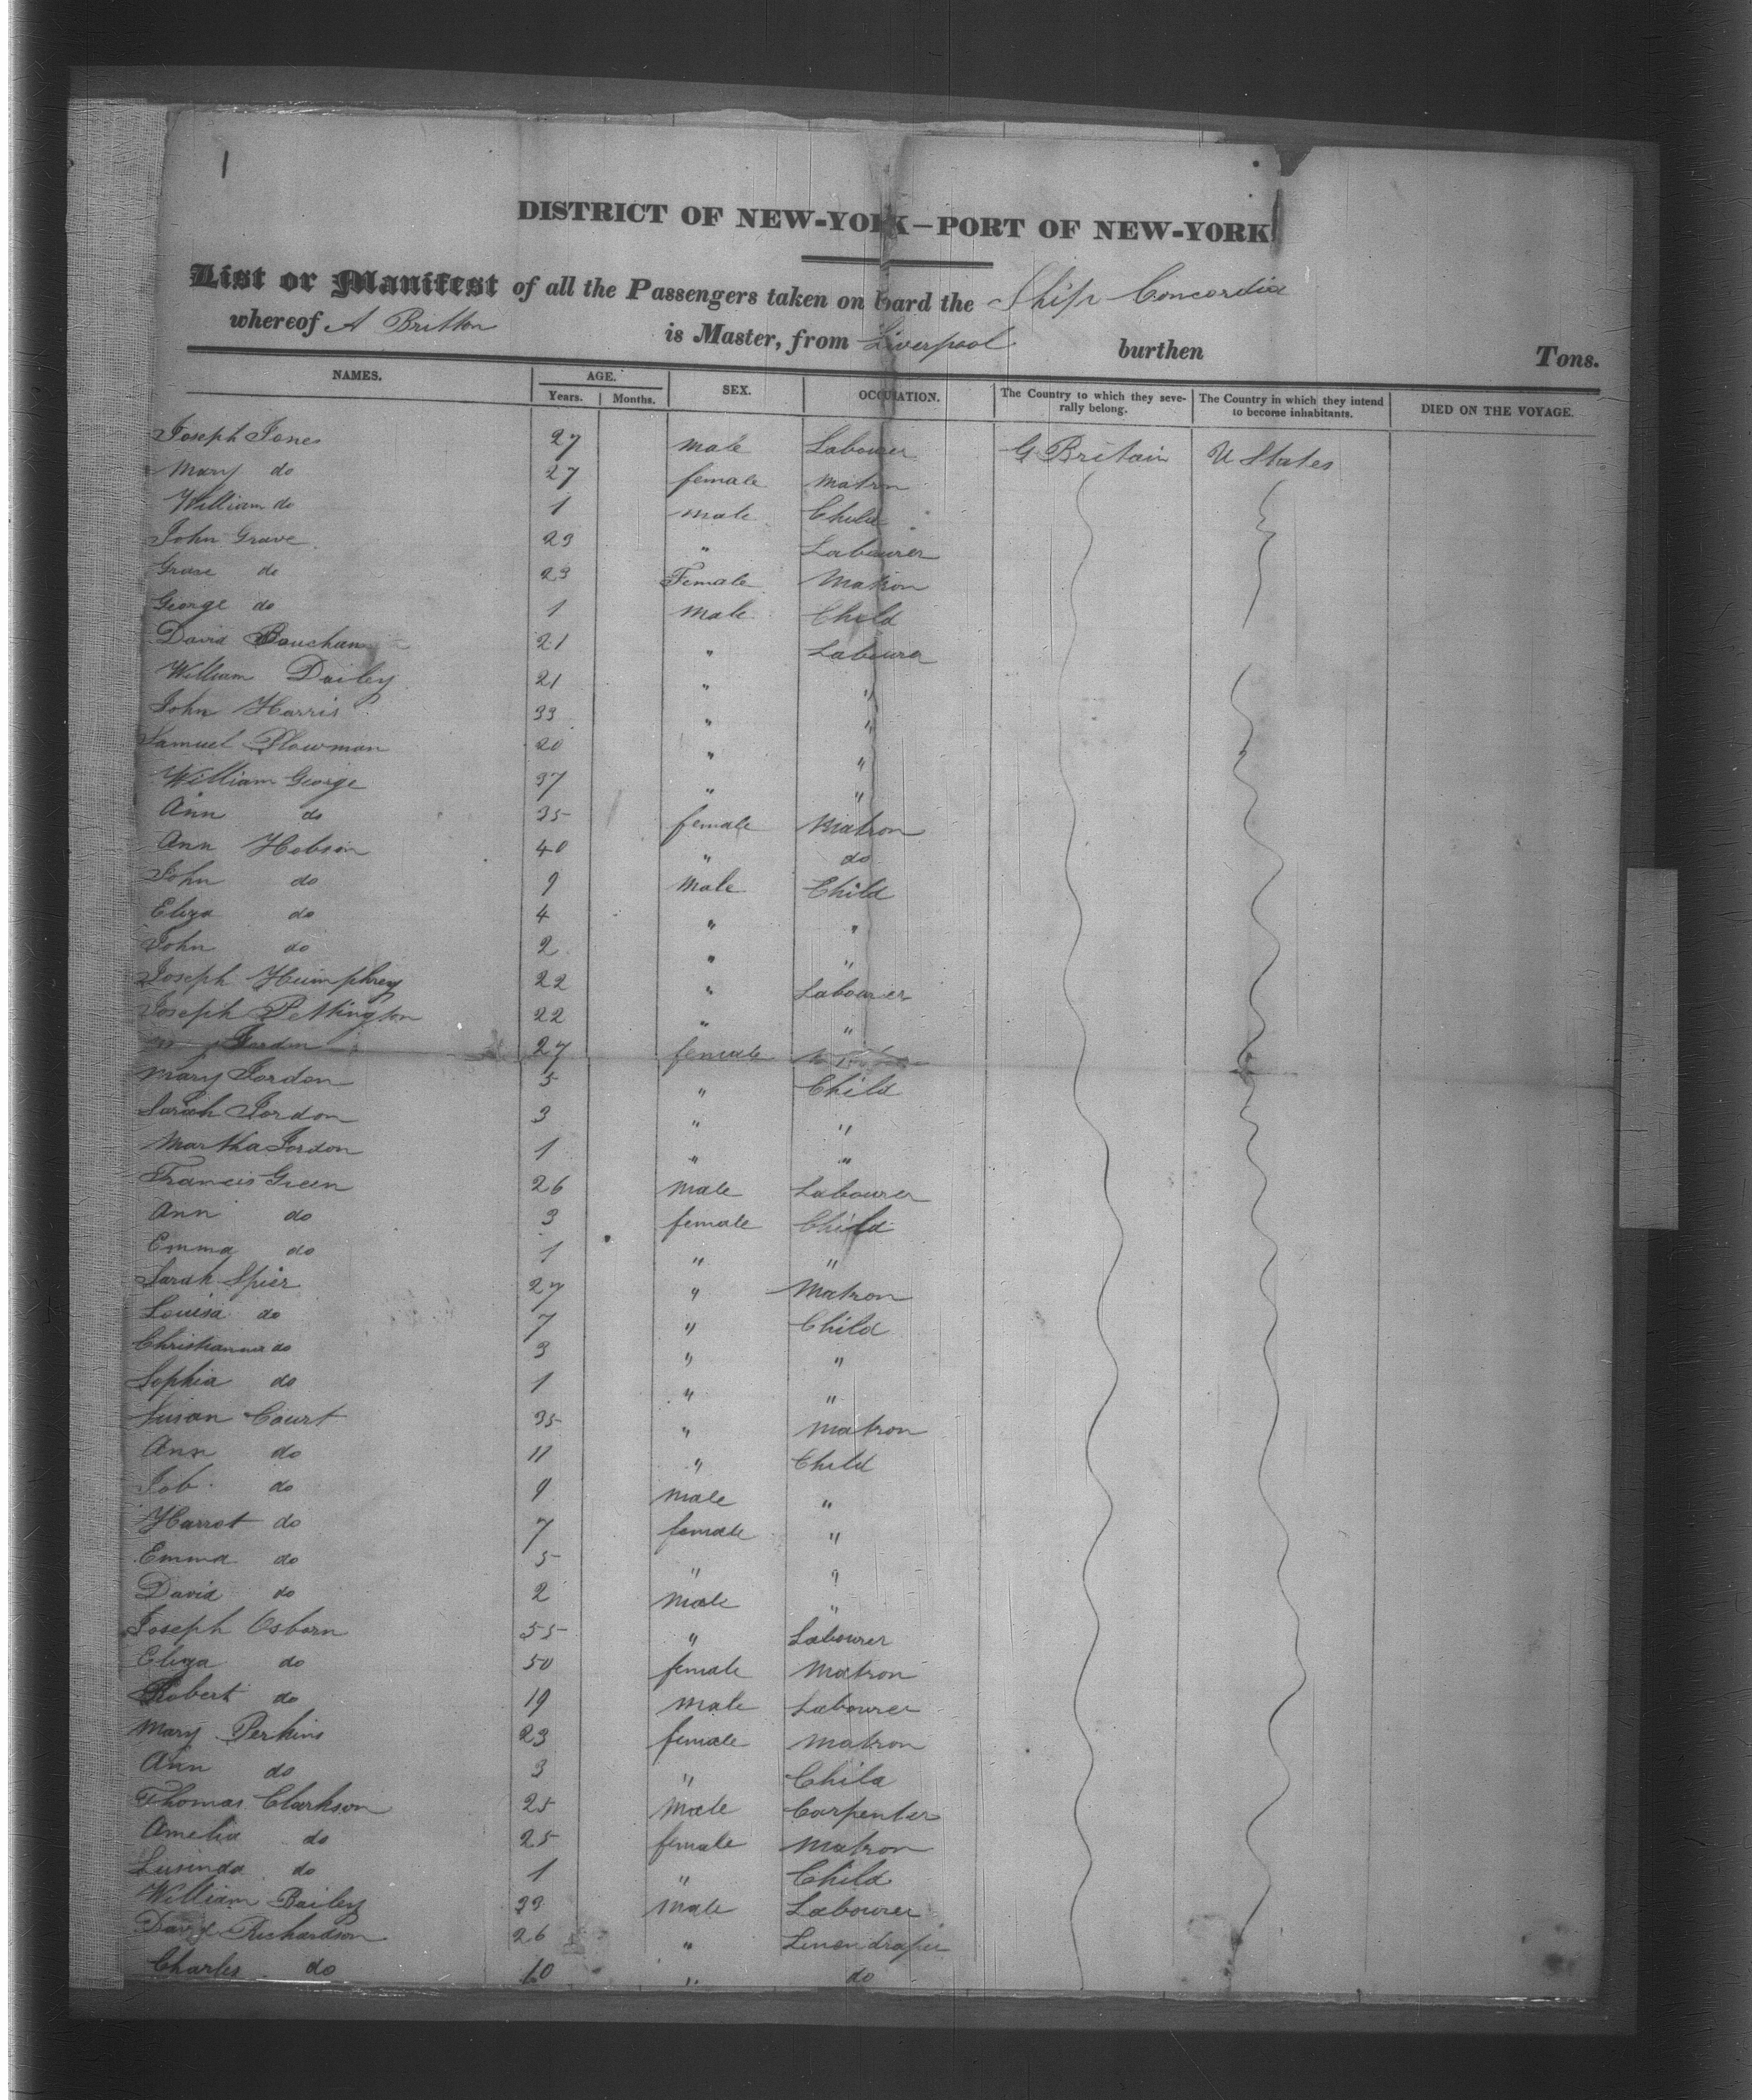 DISTRICT OF NEW-YORK—PORT OF NEW-YORK
List or Manifest of all the Passengers taken on bard the Ship Concordia
whereof A Britton is Master, from Liverpool burthen Tons.
NAMES. AGE. Years. Months. SEX. OCCUPATION. The Country to which they severally belong. The Country in which they intend to become inhabitants. DIED ON THE VOYAGE.
Joseph Jones 27 male Labourer G Britain U States
Mary do 27 female Matron
William do 1 male Child
John Grave 23 " Labourer
Grace do 23 Female Matron
George do 1 male Child
David Bauchan 21 " Labourer
William Dailey 21 " "
John Harris 33 " "
Samuel Plowman 20 " "
William George 37 " "
Ann do 35 female Matron
Ann Hobson 40 " do
John do 9 Male Child
Eliza do 4 " "
John do 2 " "
Joseph Humphrey 22 " Labourer
Joseph Pettington 22 " "
Jordon 27 female
Mary Jordon 5 " Child
Sarah Jordon 3 " "
Martha Jordon 1 " "
Francis Green 26 Male Labourer
Ann do 3 female Child
Emma do 1 " "
Sarah Spier 27 " Matron
Louisa do 7 " Child
Christianna do 3 " "
Sophia do 1 " "
Susan Court 35 " Matron
Ann do 11 " Child
Job do 9 male "
Harrot do 7 female "
Emma do 5 " "
David do 2 Male "
Joseph Osborn 55 " Labourer
Eliza do 50 female Matron
Robert do 19 male Labourer
Mary Perkins 23 female Matron
Ann do 3 " Child
Thomas Clarkson 25 Male Carpenter
Amelia do 25 female Matron
Lusinda do 1 " Child
William Bailey 33 Male Labourer
David Richardson 26 " Linen draper
Charles do 10 " do